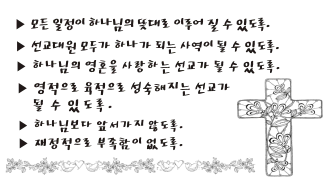 ▶ 모든 일정이 하나님의 뜻대로 이루어 질 수 있도록.
▶ 선교대원 모두가 하나가 되는 사역이 될 수 있도록.
▶ 하나님의 영혼을 사랑하는 선교가 될 수 있도록.
▶ 영적으로 육적으로 성숙해지는 선교가
될 수 있도록.
▶ 하나님보다 앞서가지 않도록.
▶ 재정적으로 부족함이 없도록.